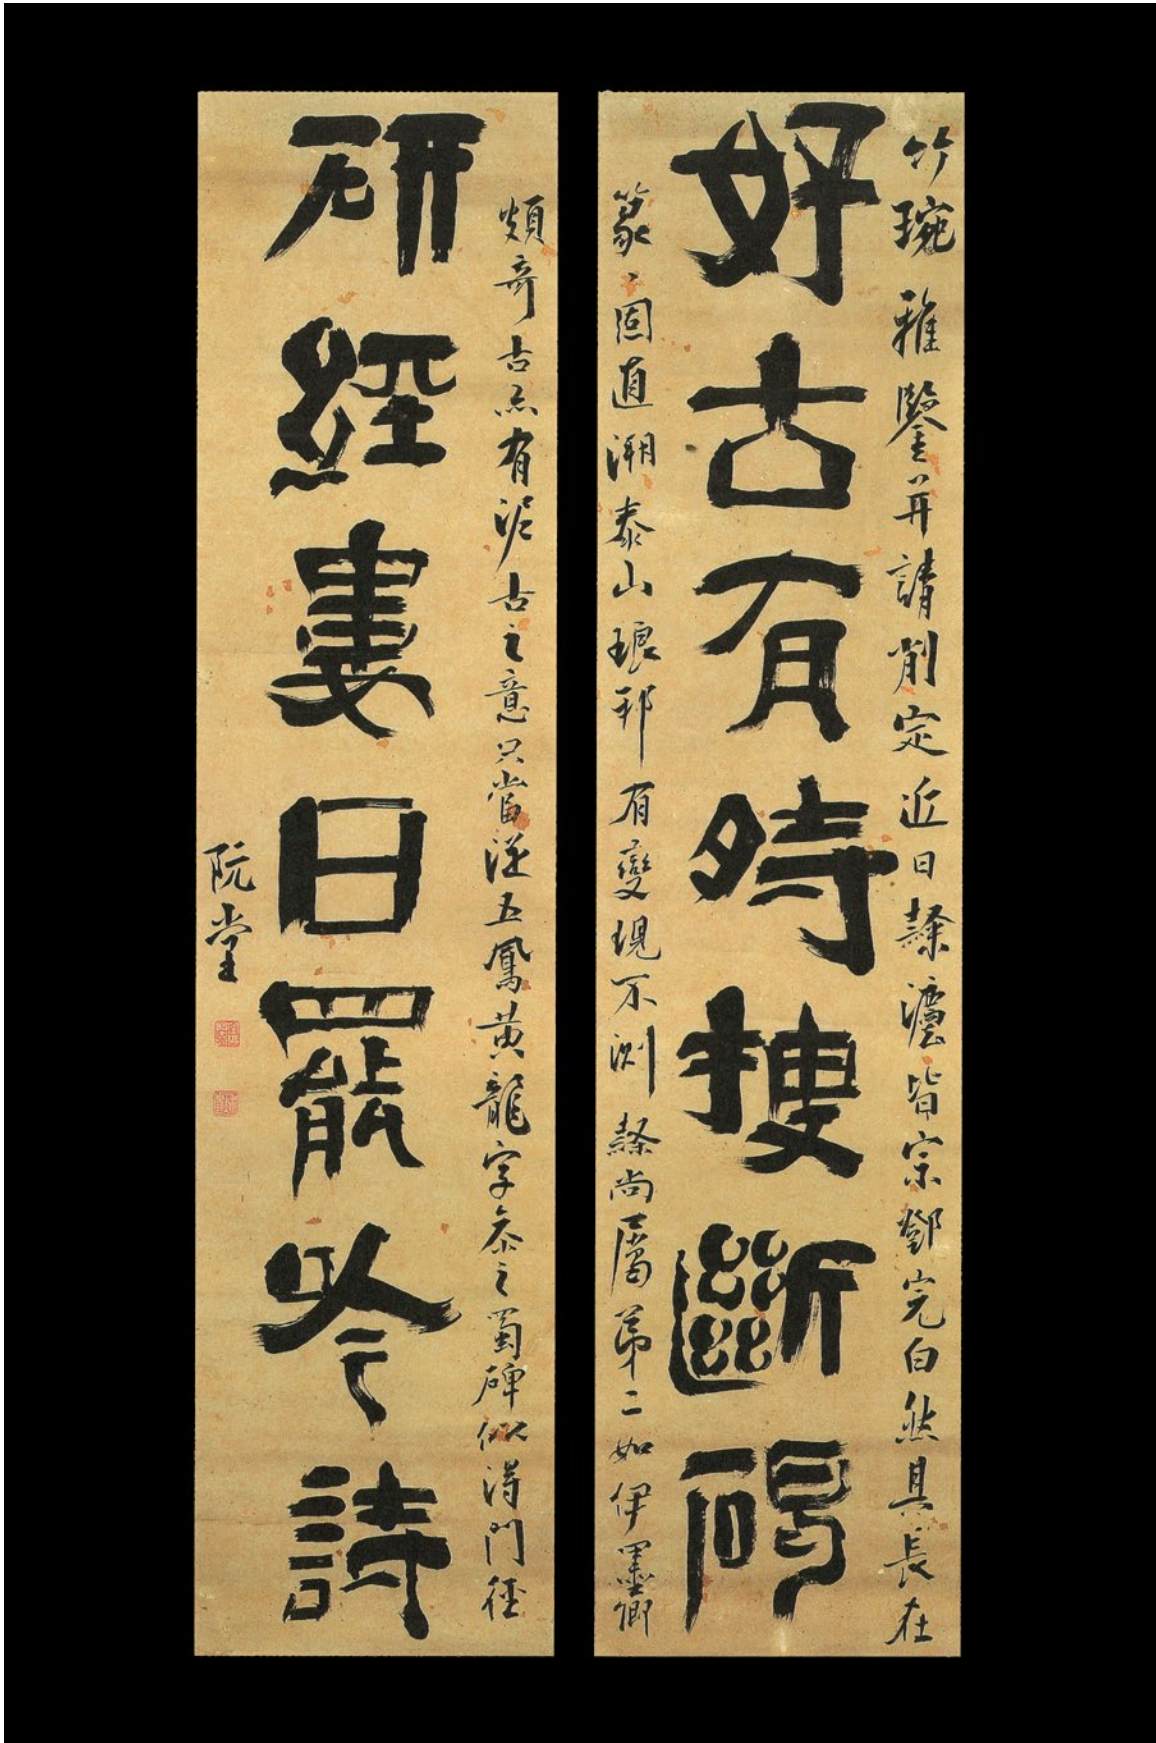 竹琬雅鑒并請削定近日隸灋皆宗鄧完白然其長在
好古有時搜斷碣
篆篆固直溯泰山琅邪有變現不測隸尚屬第二如伊墨卿
頗奇古亦有泥古之意只當從五鳳黃龍字參之蜀碑似得門徑
研經婁日罷吟詩
阮堂